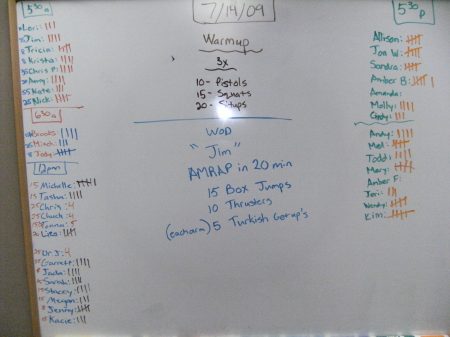 5:30a
Lori: ||||
Jim: ||||
Tricia: ||||
Krista: ||||
Chris P:
Amy: ||||
Nate: |||
Nick:
6:30a
Brooks: ||||
Mitch: |||
Toby:
12pm
15 Michelle:
15 Tasha: ||||
25 Chris: 4
25 Chuck: 4
Lisa:
Dr. J: 4
Garrett: ||||
Jada: ||||
Sarah: ||||
Stacey:
Megan:
Jenny:
15 Kacie: |||
7/14/09
Warmup
3x
10 - Pistols
15 - Squats
20 - Situps
WOD
"Jim"
AMRAP in 20 min
15 Box Jumps
10 Thrusters
(each arm) 5 Turkish Getup's
5:30p
Allison:
Jon W:
Sandra:
Amber B:
Amanda:
Molly: ||||
Cindy:
Andy:
Mel:
Todd:
Mary:
Amber F:
Jeri:
Wendy:
Kim: